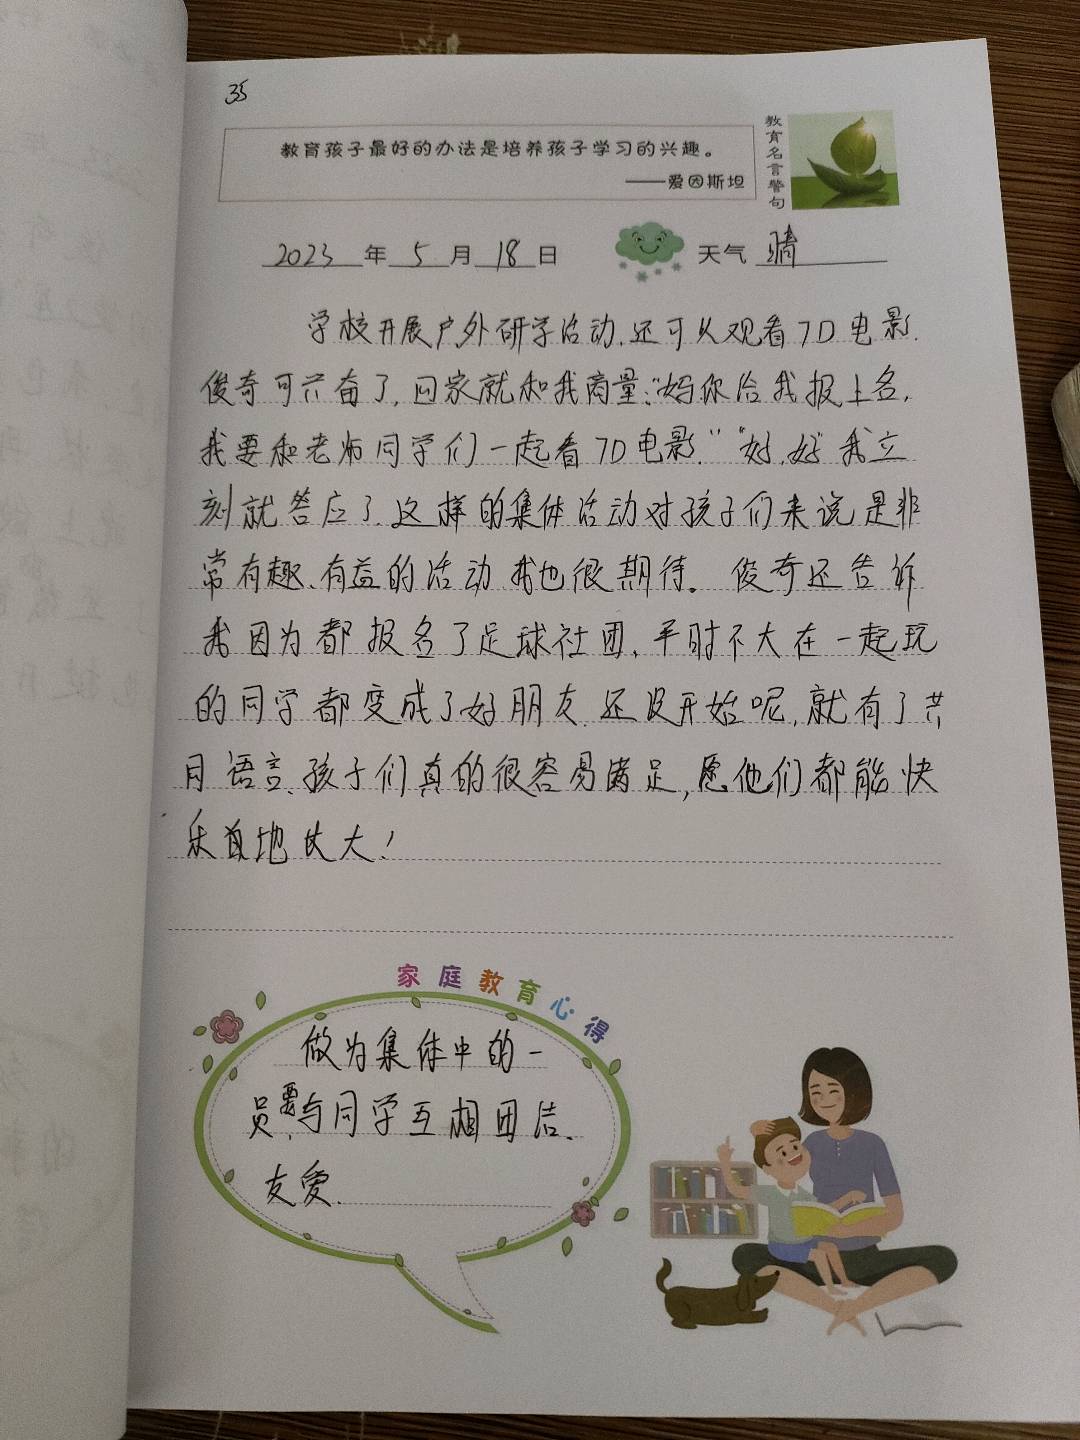 35
教育孩子最好的办法是培养孩子学习的兴趣。
——爱因斯坦
教育名言警句
2023年5月18日 天气 晴
学校开展户外研学活动.还可以观看7D电影.
俊奇可兴奋了,回家就和我商量:“妈你给我报上名,
我要和老师同学们一起看7D电影.”“好,好”我立
刻就答应了.这样的集体活动对孩子们来说是非
常有趣、有益的活动我也很期待。俊奇还告诉
我因为都报名了足球社团,平时不大在一起玩
的同学都变成了好朋友.还没开始呢,就有了共
同语言.孩子们真的很容易满足,愿他们都能快
乐自地长大!
家庭教育心得
做为集体中的一
员,要与同学互相团结、
友爱.